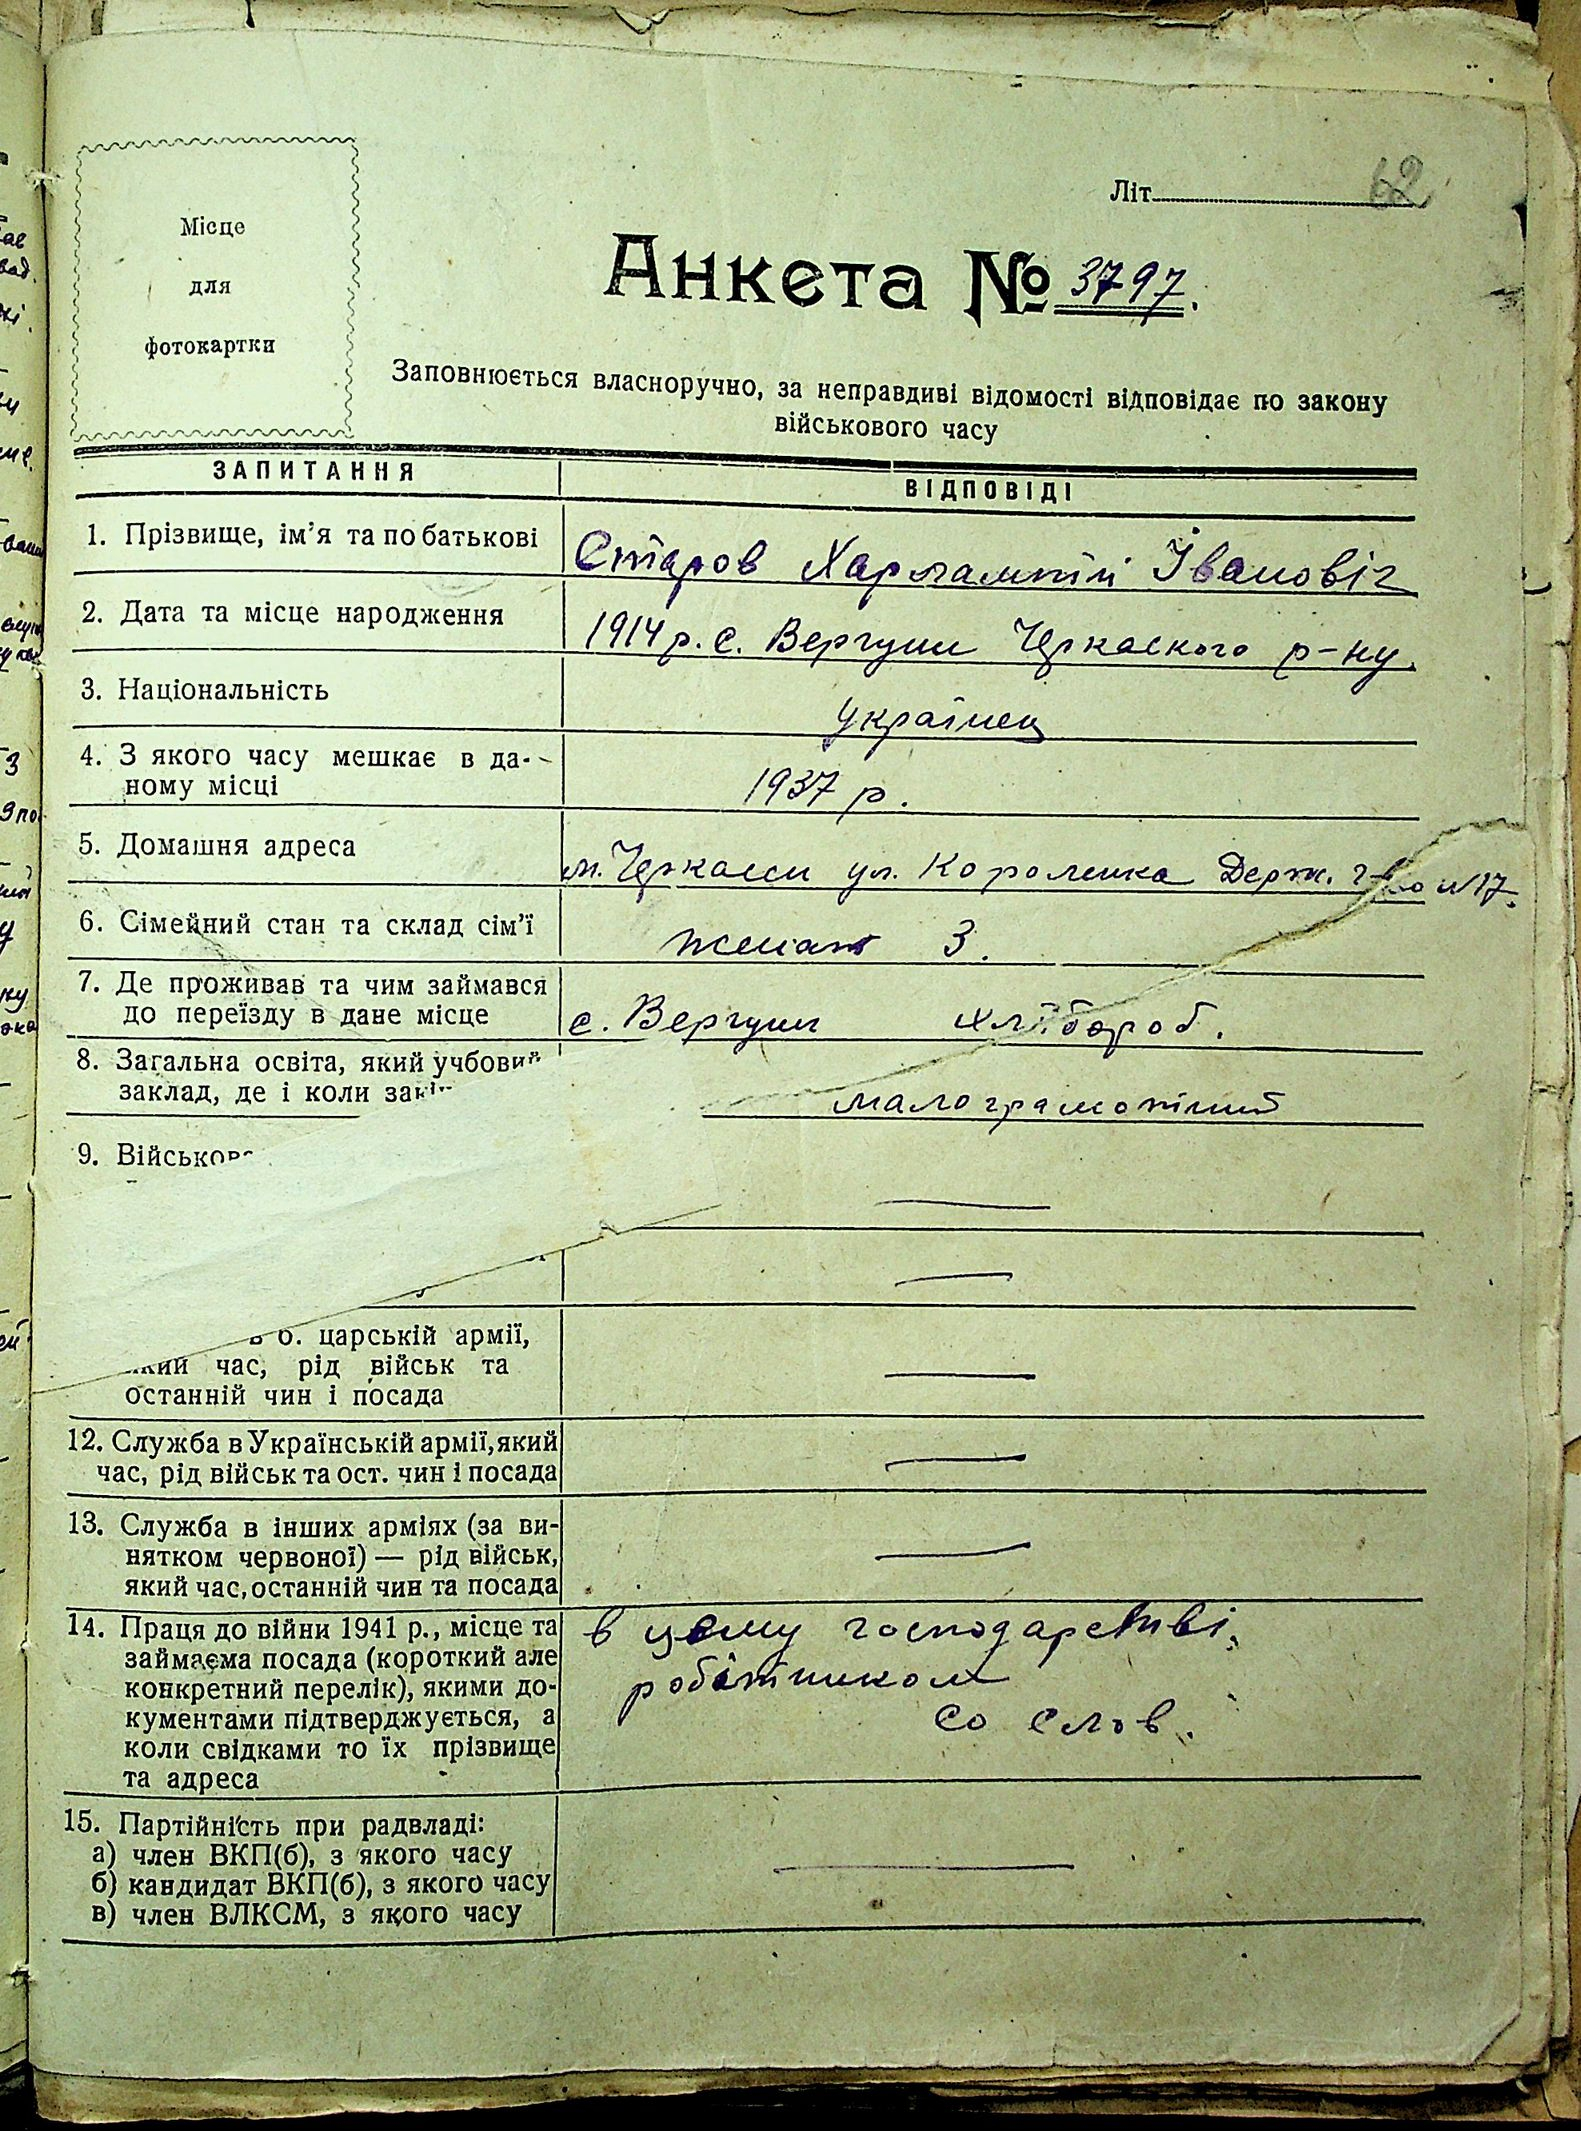 62
Літ
Місце
для
фотокартки
Анкета № 3797.
Заповнюється власноручно, за неправдиві відомості відповідає по закону
військового часу
ЗАПИТАННЯ
ВІДПОВІДІ
1. Прізвище, ім'я та по батькові
Старов Харлампій Івановіч
2. Дата та місце народження
1914 р. с. Вергуни Черкаского р-ну.
3. Національність
українец
4. З якого часу мешкає в да-
ному місці
1937 р.
5. Домашня адреса
м. Черкаси ул. Короленка Держ. г-во №17.
6. Сімейний стан та склад сім'ї
женат 3.
7. Де проживав та чим займався
до переїзду в дане місце
с. Вергуни хлібороб.
8. Загальна освіта, який учбовий
заклад, де і коли закін
малограмотний
9. Військов
в б. царській армії,
який час, рід військ та
останній чин і посада
12. Служба в Українській армії, який
час, рід військ та ост. чин і посада
13. Служба в інших арміях (за ви-
нятком червоної) — рід військ,
який час, останній чин та посада
14. Праця до війни 1941 р., місце та
займаєма посада (короткий але
конкретний перелік), якими до-
кументами підтверджується, а
коли свідками то їх прізвище
та адреса
в цьому господарстві,
робітником
со слов.
15. Партійність при радвладі:
а) член ВКП(б), з якого часу
б) кандидат ВКП(б), з якого часу
в) член ВЛКСМ, з якого часу